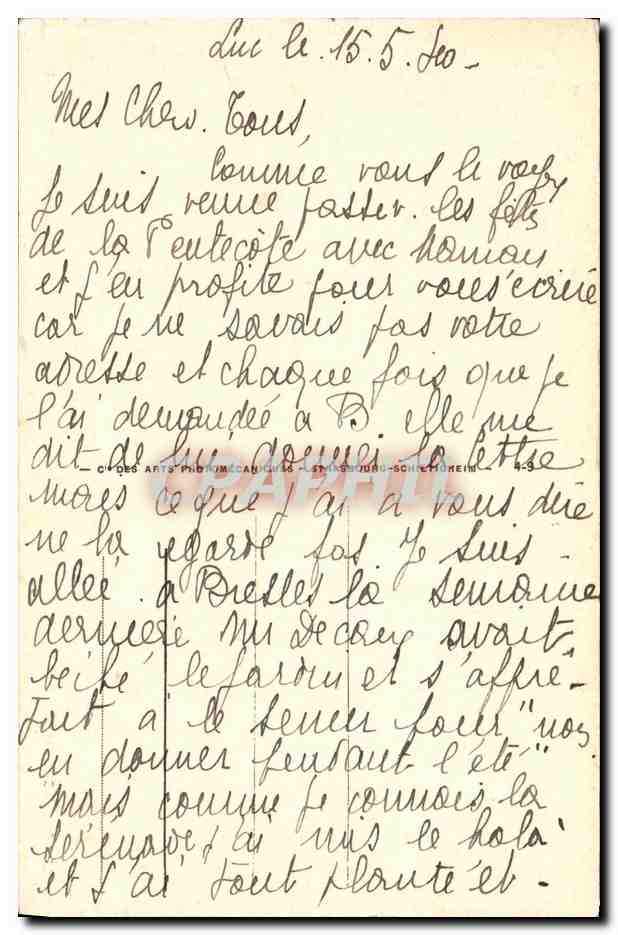 Luc le. 15.5.40 -
Mes Chers. Tous,
Comme vous le voyez
Je suis venue passer. les fêtes
de la Pentecôte avec Maman
et j'en profite pour vous écrire
car je ne savais pas votre
adresse et chaque fois que je
l'ai demandée a B elle me
dit de lui donner la lettre
Cie DES ARTS PHOTOMÉCANIQUES - STRASBOURG-SCHILTIGHEIM 4-9
CPAPHIL
mais ce que j'ai a vous dire
ne la regarde pas. Je suis -
allée. a Bresles la semaine
dernière Mr avait
béché le jardin et s'apprê-
tait a le semer pour "nous
en donner pendant l'été"
mais comme je connais la
sérénade j'ai mis le hola
et j'ai tout planté et -